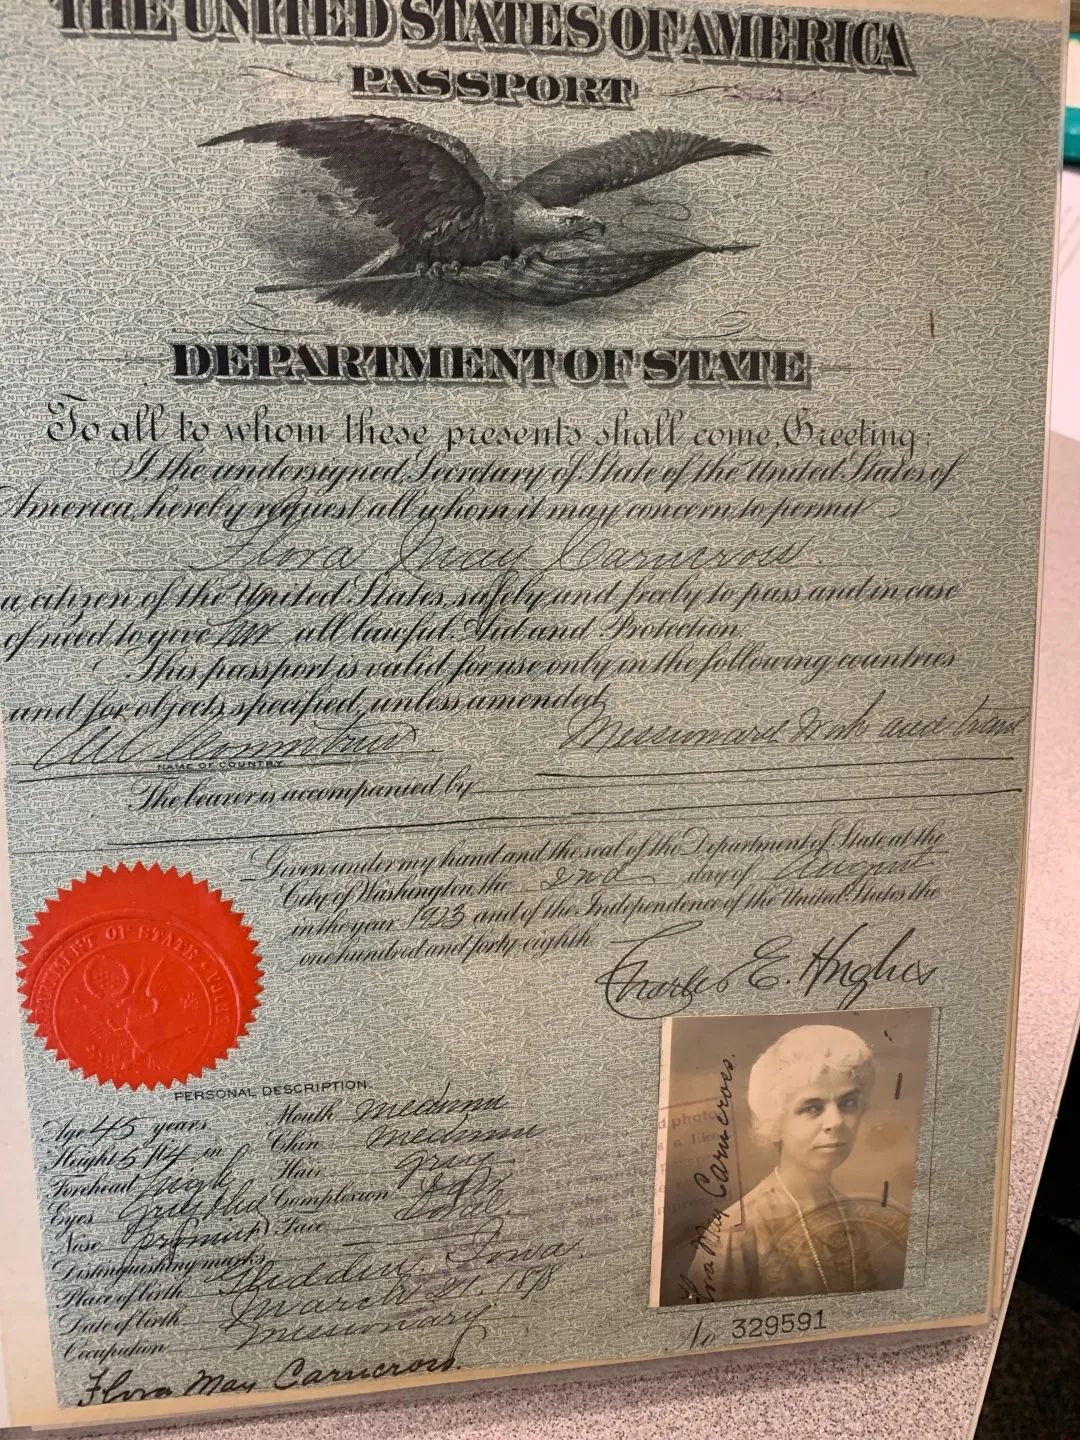 THE UNITED STATES OF AMERICA
PASSPORT
DEPARTMENT OF STATE
To all to whom these presents shall come, Greeting:
I, the undersigned, Secretary of State of the United States of
America, hereby request all whom it may concern to permit
Flora May Carncross
a citizen of the United States, safely and freely to pass and in case
of need to give her all lawful Aid and Protection.
This passport is valid for use only in the following countries
and for objects specified, unless amended
All Countries Missionary Work and Travel
NAME OF COUNTRY
The bearer is accompanied by
Given under my hand and the seal of the Department of State at the
City of Washington, the 2nd day of August
in the year 1923 and of the Independence of the United States the
one hundred and forty eighth
Charles E. Hughes
OF STATE
PERSONAL DESCRIPTION.
Age 45 years Mouth medium
Height 5 ft 4 in Chin medium
Forehead high Hair gray
Eyes Complexion fair
Nose Face oval.
Distinguishing marks
Place of birth Glidden, Iowa.
Date of birth March 21, 1878
Occupation missionary
Flora May Carncross.
Flora May Carncross.
photo
a like
No 329591